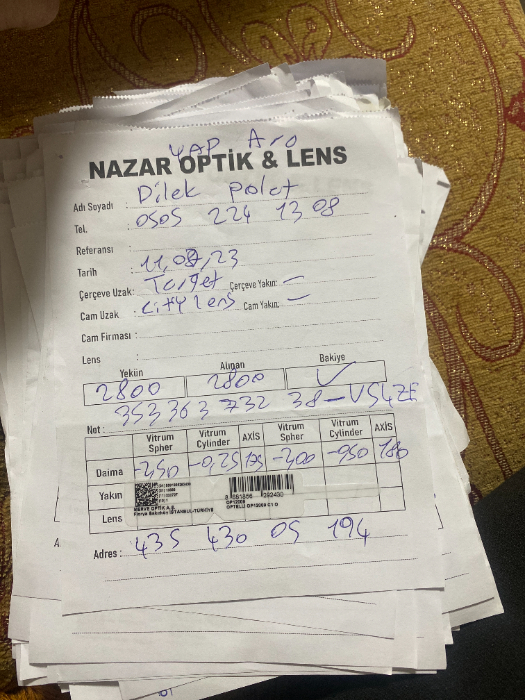 YAP Aro
NAZAR OPTİK & LENS
Adı Soyadı : Dilek Polat
Tel. : 0505 224 13 08
Referansı :
Tarih : 11,08,23
Çerçeve Uzak: Target Çerçeve Yakın: —
Cam Uzak : citylens Cam Yakın: —
Cam Firması :
Lens :
Yekün Alınan Bakiye
2800 2800 ✓
353 363 732 38-VSLZE
Net :
Vitrum Spher Vitrum Cylinder AXİS Vitrum Spher Vitrum Cylinder AXİS
Daima -250 -0,25 -200 -050 180
Yakın
Lens
MERVE OPTİK A.Ş.
İSTANBUL-TÜRKİYE
OP12009
OPTELLI OP12009 C1 O
A
Adres : 435 430 05 194